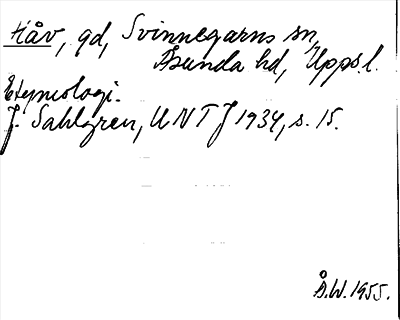 Håv, gd, Svinnegarns sn,
Åsunda hd, Uppsl.
Etymologi.
J. Sahlgren, UNTJ 1934, s. 15.
Å.W. 1955.